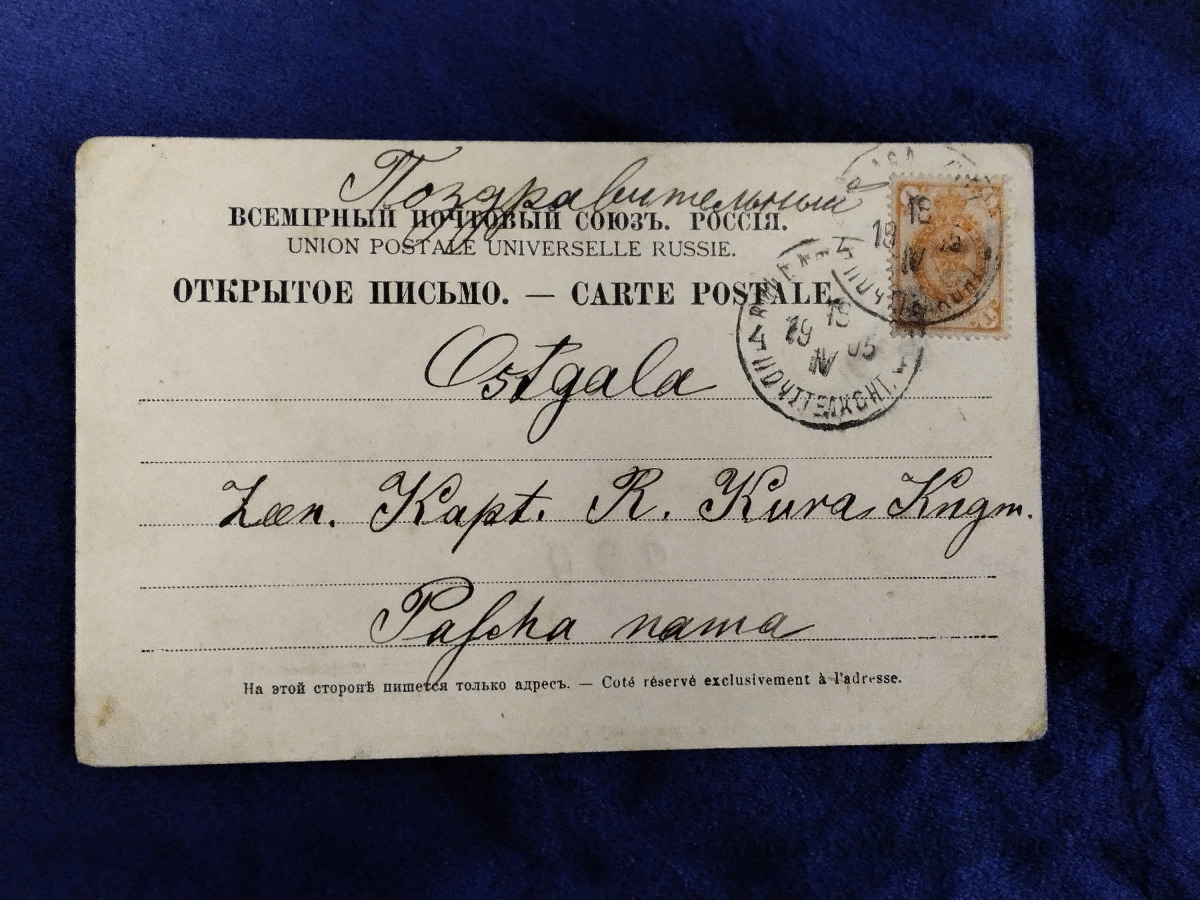 Поздравительный
ВСЕМІРНЫЙ ПОЧТОВЫЙ СОЮЗЪ. РОССІЯ.
UNION POSTALE UNIVERSELLE RUSSIE.
ОТКРЫТОЕ ПИСЬМО. — CARTE POSTALE
18
19 05
IV
4 4
18
19 05
IV
Ostgala
Zeen. Kapt. R. Kura Kngm.
Pascha nama
На этой сторонѣ пишется только адресъ. — Coté réservé exclusivement à l'adresse.